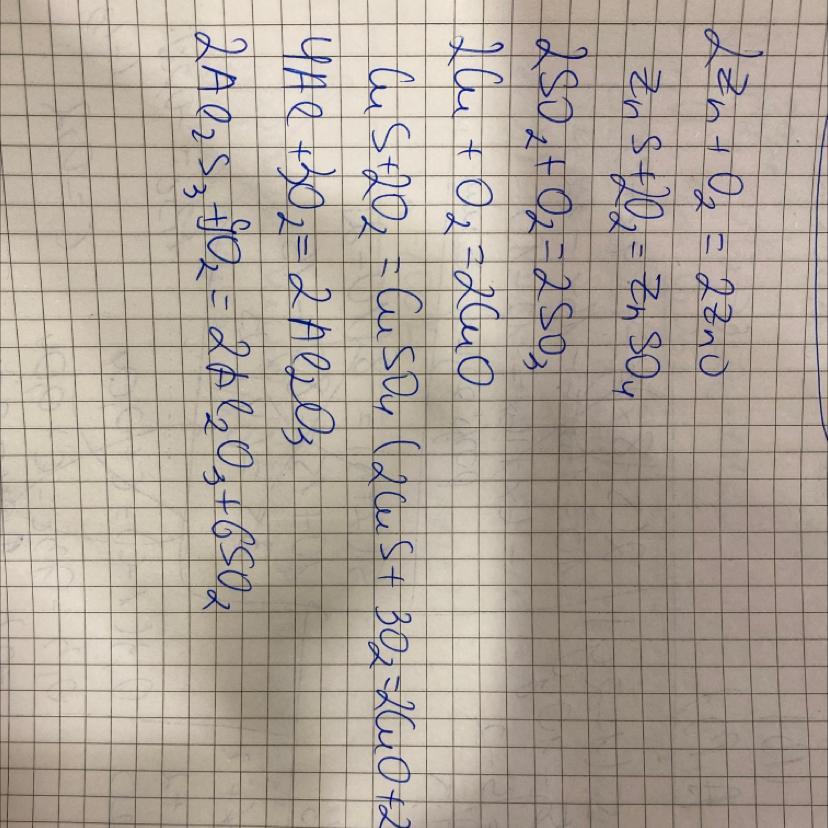 2Zn + O₂ = 2ZnO
ZnS + 2O₂ = ZnSO₄
2SO₂ + O₂ = 2SO₃
2Cu + O₂ = 2CuO
CuS + 2O₂ = CuSO₄ (2CuS + 3O₂ = 2CuO + 2
4Al + 3O₂ = 2Al₂O₃
2Al₂S₃ + 9O₂ = 2Al₂O₃ + 6SO₂